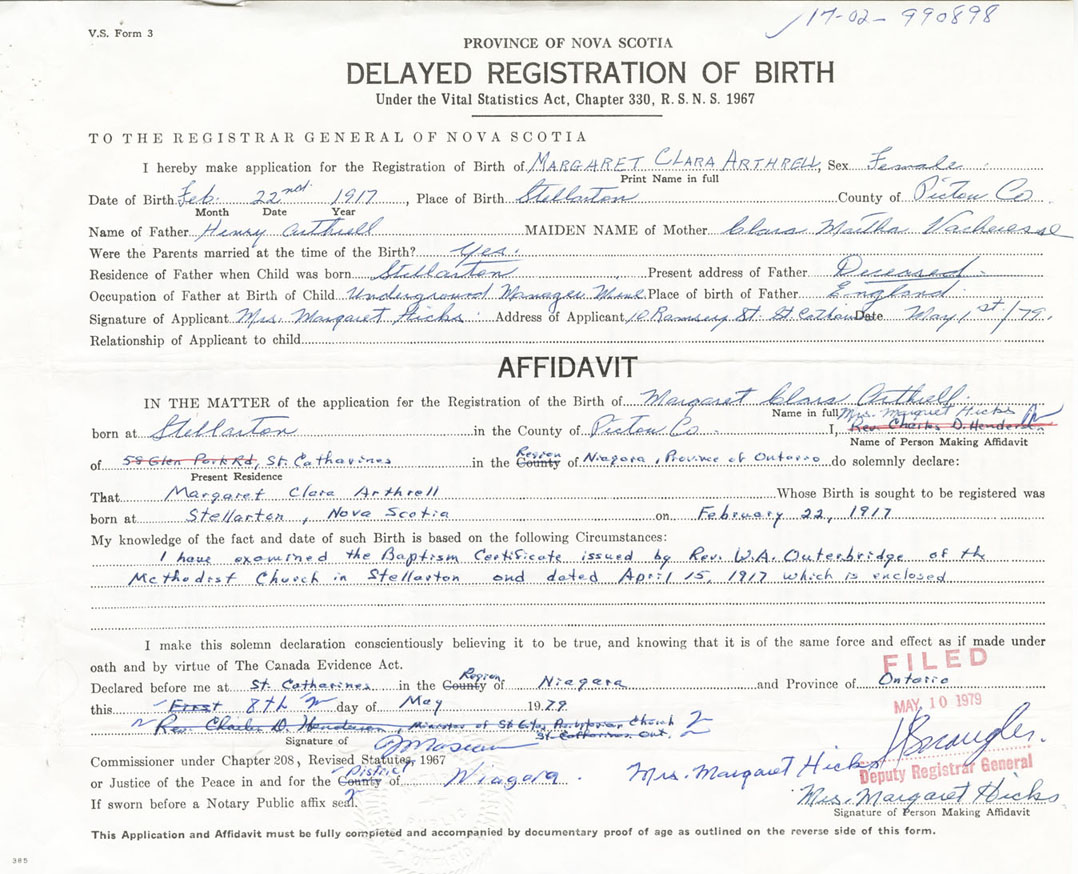 17-02-990898
V.S. Form 3
PROVINCE OF NOVA SCOTIA
DELAYED REGISTRATION OF BIRTH
Under the Vital Statistics Act, Chapter 330, R. S. N. S. 1967
TO THE REGISTRAR GENERAL OF NOVA SCOTIA
I hereby make application for the Registration of Birth of MARGARET CLARA ARTHRELL, Sex Female
Print Name in full
Date of Birth Feb. 22nd. 1917, Place of Birth Stellarton County of Pictou Co.
Month Date Year
Name of Father Henry Arthrell MAIDEN NAME of Mother Clara Martha Vacheresse
Were the Parents married at the time of the Birth? Yes.
Residence of Father when Child was born Stellarton, Present address of Father Deceased.
Occupation of Father at Birth of Child Underground Manager Mine Place of birth of Father England
Signature of Applicant Mrs. Margaret Hicks Address of Applicant 10 Ramsey St. St Catharines Date May 1st/79.
Relationship of Applicant to child
AFFIDAVIT
IN THE MATTER of the application for the Registration of the Birth of Margaret Clara Arthrell
Name in full Mrs. Margaret Hicks
born at Stellarton in the County of Pictou Co I, Rev. Charles D. Henderson
Name of Person Making Affidavit
of 58 Glen Park Rd, St. Catharines in the County Region of Niagara, Province of Ontario do solemnly declare:
Present Residence
That Margaret Clara Arthrell Whose Birth is sought to be registered was
born at Stellarton, Nova Scotia on February 22, 1917
My knowledge of the fact and date of such Birth is based on the following Circumstances:
I have examined the Baptism Certificate issued by Rev. W.A. Outerbridge of the
Methodist Church in Stellarton and dated April 15, 1917 which is enclosed
I make this solemn declaration conscientiously believing it to be true, and knowing that it is of the same force and effect as if made under
oath and by virtue of The Canada Evidence Act.
FILED
Declared before me at St. Catharines in the County Region of Niagara and Province of Ontario
this First 8th day of May 1979
MAY 10 1979
Rev. Charles D. Henderson, Minister of St Giles Presbyterian Church
St. Catharines Ont.
Signature of
Commissioner under Chapter 208, Revised Statutes, 1967
Deputy Registrar General
or Justice of the Peace in and for the County District of Niagara. Mrs. Margaret Hicks
If sworn before a Notary Public affix seal. Mrs. Margaret Hicks
Signature of Person Making Affidavit
This Application and Affidavit must be fully completed and accompanied by documentary proof of age as outlined on the reverse side of this form.
385